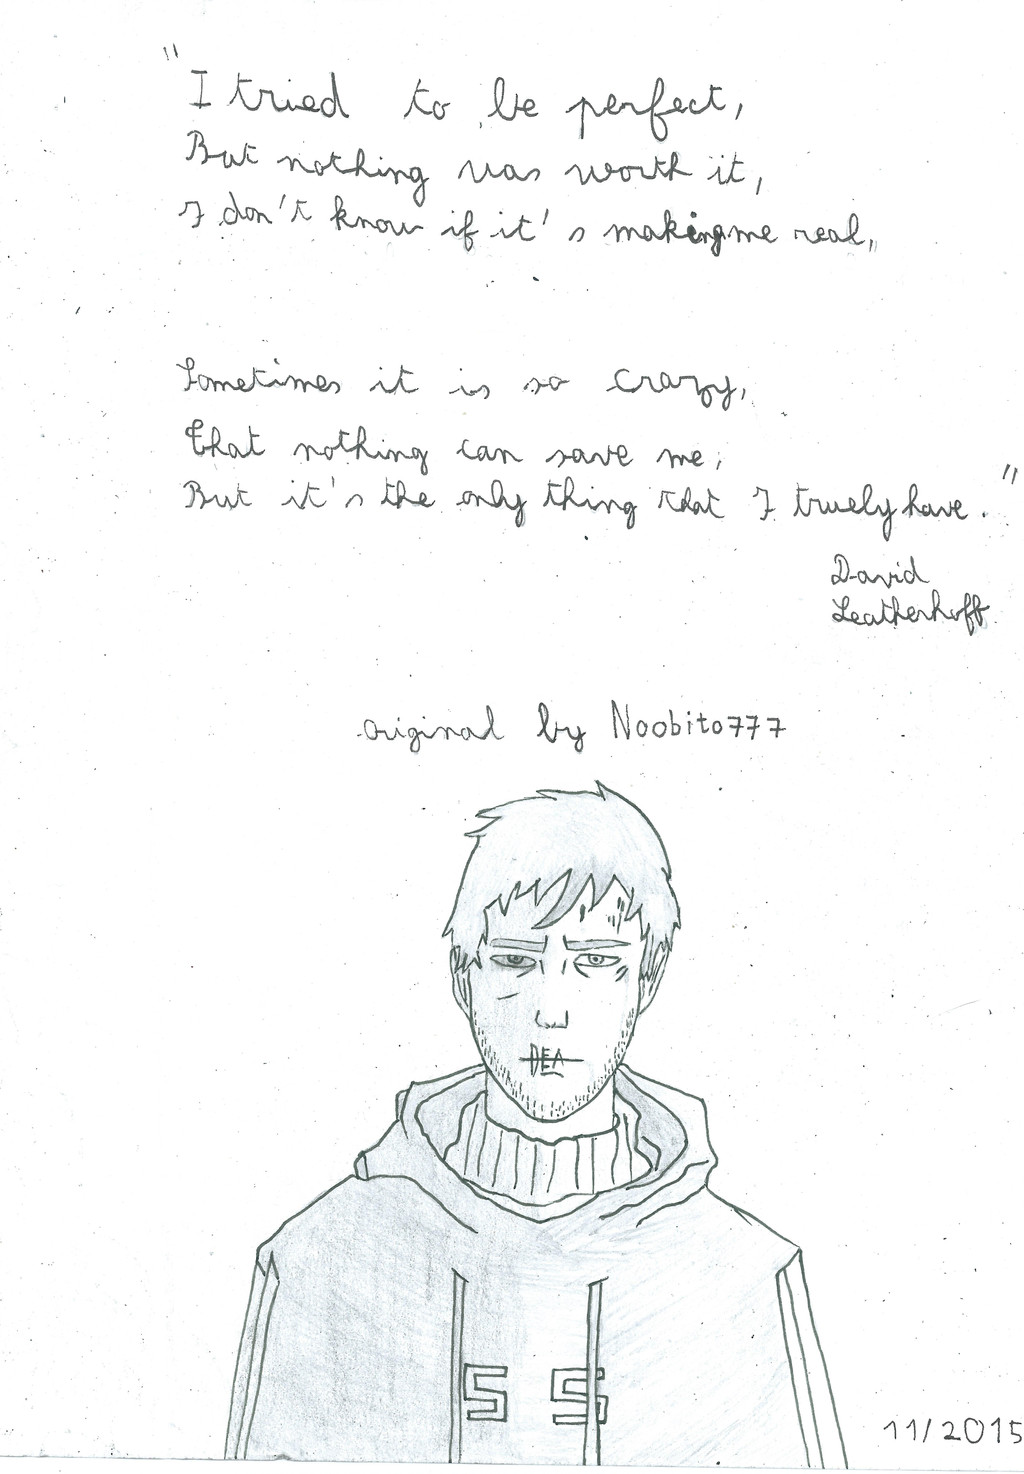 "I tried to be perfect,
But nothing was worth it,
I don't know if it's making me real,
Sometimes it is so crazy,
That nothing can save me,
But it's the only thing that I truely have."
David
Leatherhoff
original by Noobito777
DEA
S S
11/2015